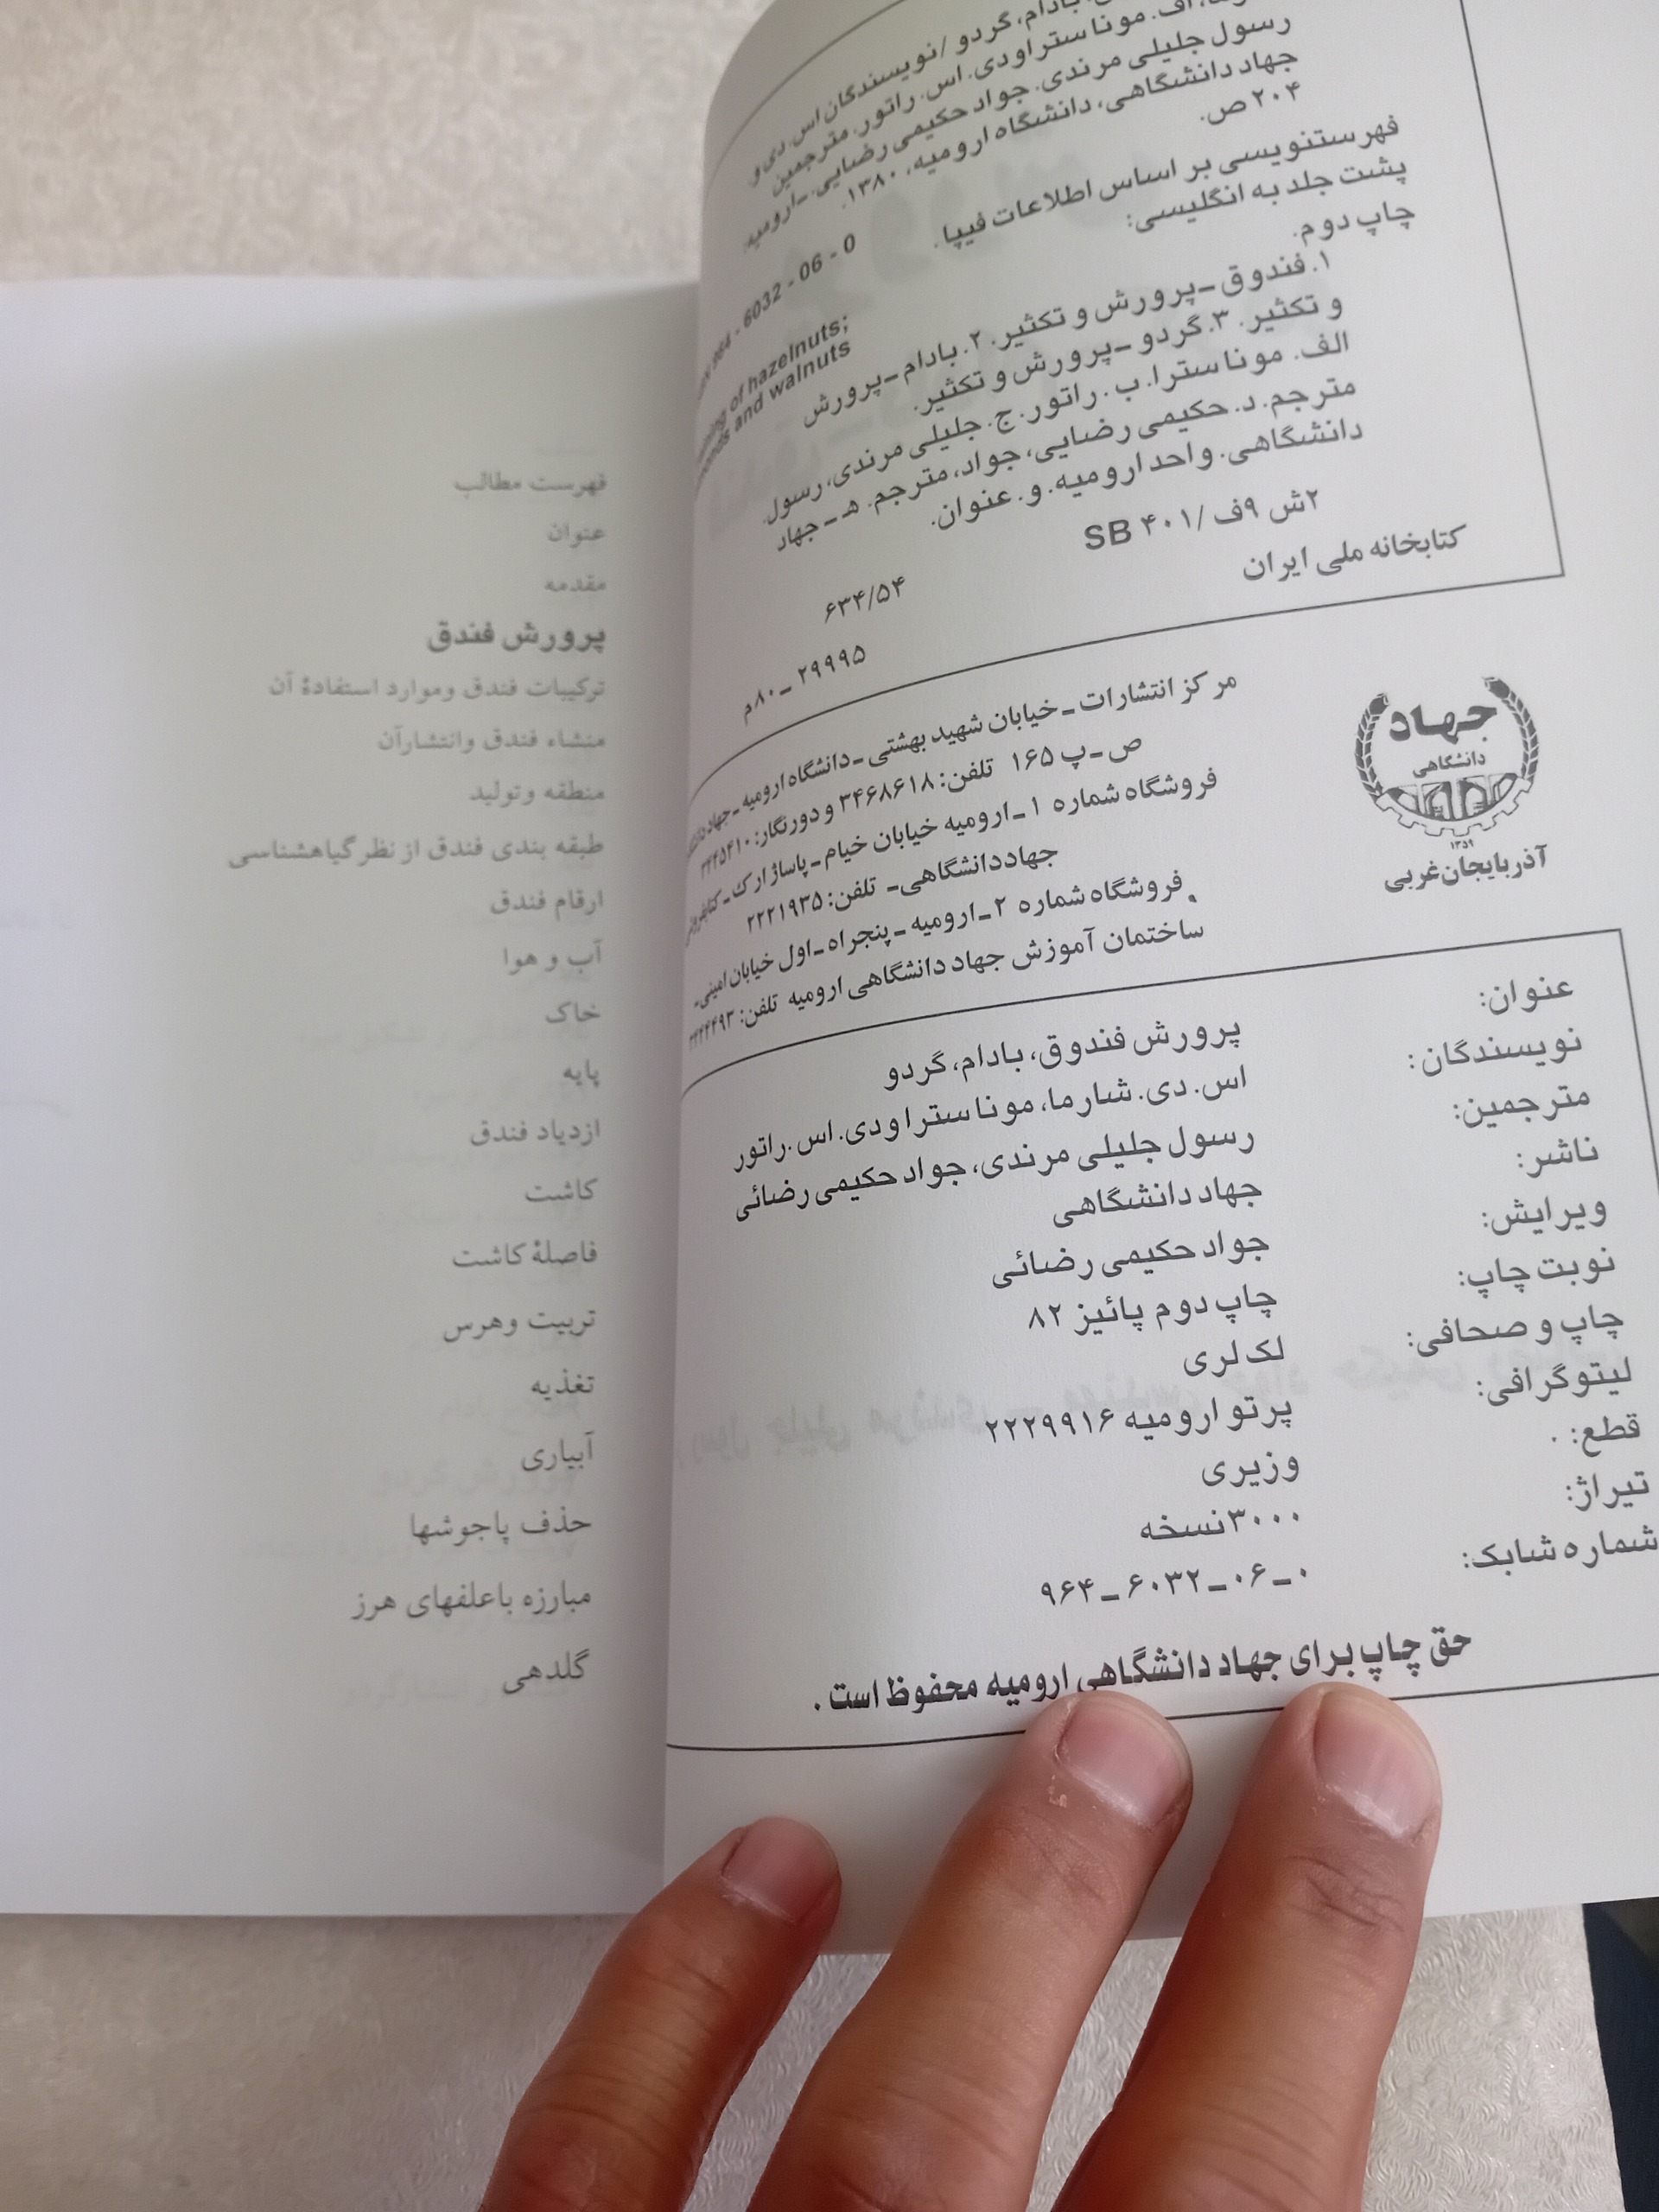 بادام، گردو / نویسندگان اس. دی و
اف. مونا سترا و دی. اس. راتور. مترجمین
رسول جلیلی مرندی. جواد حکیمی رضایی. ـ ارومیه:
جهاد دانشگاهی، دانشگاه ارومیه، ۱۳۸۰.
۲۰۴ ص.
964 - 6032 - 06 - 0
فهرستنویسی بر اساس اطلاعات فیپا.
پشت جلد به انگلیسی:
of hazelnuts;
and walnuts
چاپ دوم.
۱. فندوق ـ پرورش و تکثیر. ۲. بادام ـ پرورش
و تکثیر. ۳. گردو ـ پرورش و تکثیر.
الف. مونا سترا. ب. راتور. ج. جلیلی مرندی، رسول.
مترجم. د. حکیمی رضایی، جواد، مترجم. هـ ـ جهاد
دانشگاهی. واحد ارومیه. و. عنوان.
۲ش ۹ف / ۴۰۱ SB
۶۳۴/۵۴
کتابخانه ملی ایران
۲۹۹۹۵ ـ ۸۰م
جهاد
دانشگاهی
۱۳۵۹
آذربایجان‌غربی
مرکز انتشارات ـ خیابان شهید بهشتی ـ دانشگاه ارومیه ـ
ص ـ پ ۱۶۵ تلفن: ۳۴۶۸۶۱۸ و دورنگار:
فروشگاه شماره ۱ ـ ارومیه خیابان خیام ـ پاساژ ارک ـ
جهاد دانشگاهی ـ تلفن: ۲۲۲۱۹۳۵
فروشگاه شماره ۲ ـ ارومیه ـ پنجراه ـ اول خیابان امینی ـ
ساختمان آموزش جهاد دانشگاهی ارومیه تلفن:
عنوان: پرورش فندوق، بادام، گردو
نویسندگان: اس. دی. شارما، مونا سترا و دی. اس. راتور
مترجمین: رسول جلیلی مرندی، جواد حکیمی رضائی
ناشر: جهاد دانشگاهی
ویرایش: جواد حکیمی رضائی
نوبت چاپ: چاپ دوم پائیز ۸۲
چاپ و صحافی: لک لری
لیتوگرافی: پرتو ارومیه ۲۲۲۹۹۱۶
قطع: وزیری
تیراژ: ۳۰۰۰ نسخه
شماره شابک: ۰ ـ ۰۶ ـ ۶۰۳۲ ـ ۹۶۴
حق چاپ برای جهاد دانشگاهی ارومیه محفوظ است.
فهرست مطالب
عنوان
مقدمه
پرورش فندق
ترکیبات فندق وموارد استفادهٔ آن
منشاء فندق وانتشارآن
منطقه وتولید
طبقه بندی فندق از نظر گیاهشناسی
ارقام فندق
آب و هوا
خاک
پایه
ازدیاد فندق
کاشت
فاصلهٔ کاشت
تربیت وهرس
تغذیه
آبیاری
حذف پاجوشها
مبارزه باعلفهای هرز
گلدهی